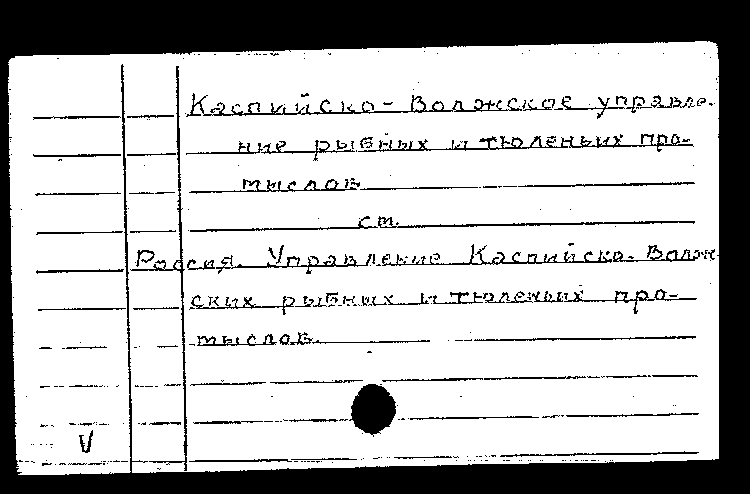 Каспийско-Волжское управле-
ние рыбных и тюленьих про-
мыслов
см.
Россия. Управление Каспийско-Волж-
ских рыбных и тюленьих про-
мыслов.
V